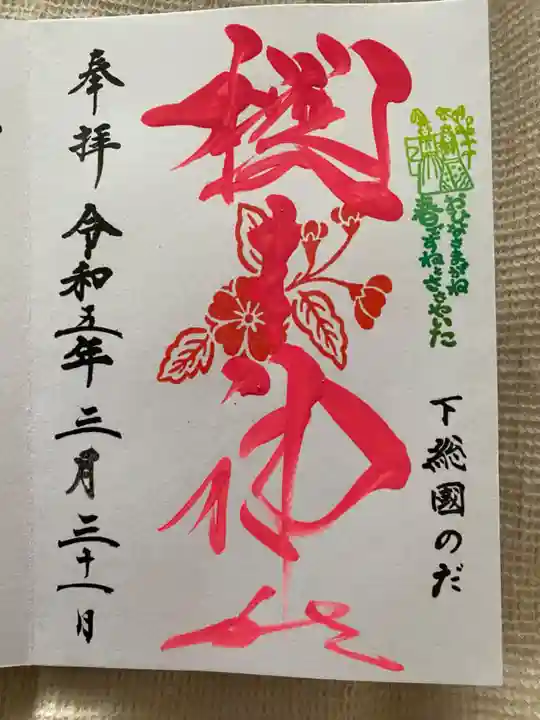 下総國のだ
おひなさまがね
春ですねとささやいた
櫻木神社
奉拝 令和五年 三月 三十一日